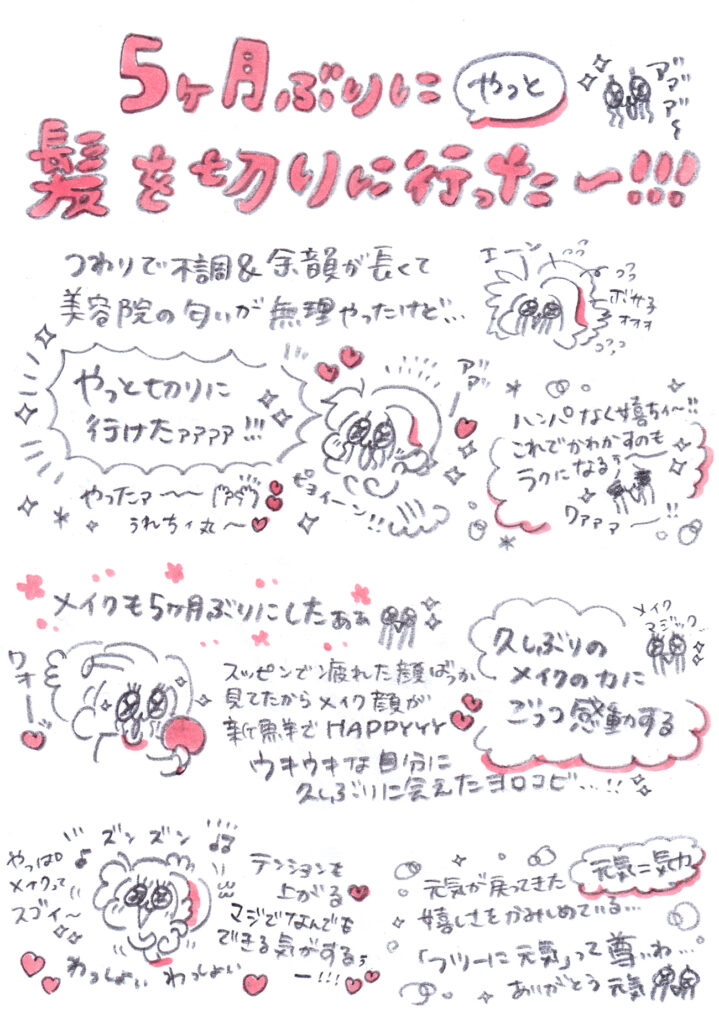 5ヶ月ぶりに
やっと
ア゛ア゛ア゛
髪を切りに行ったー!!!
つわりで不調&余韻が長くて
美容院の匂いが無理やったけど…
エーン
ボサ子
オオオ
やっと切りに
行けたァァァァ!!!
アア゛ア゛
やったァ〜〜
うれちィ丸〜
ピョイーン!!
ハンパなく嬉ちィ〜!!
これでかわかすのも
ラクになるぅ〜
ワァァァ〜!!
メイクも5ヶ月ぶりにしたぁぁ
ワオー
スッピンで疲れた顔ばっか
見てたからメイク顔が
新鮮でHAPPYYY
ウキウキな自分に
久しぶりに会えたヨロコビ…!!
メイク
マジック…
久しぶりの
メイクの力に
ごっつ感動する
ズンズン
やっぱ
メイクって
スゴイ〜
わっしょい わっしょい
テンションも
上がる
マジでなんでも
できる気がするぅ
ー!!!
元気=気力
元気が戻ってきた
嬉しさをかみしめている…
「フツーに元気」って尊いわ…
ありがとう元気